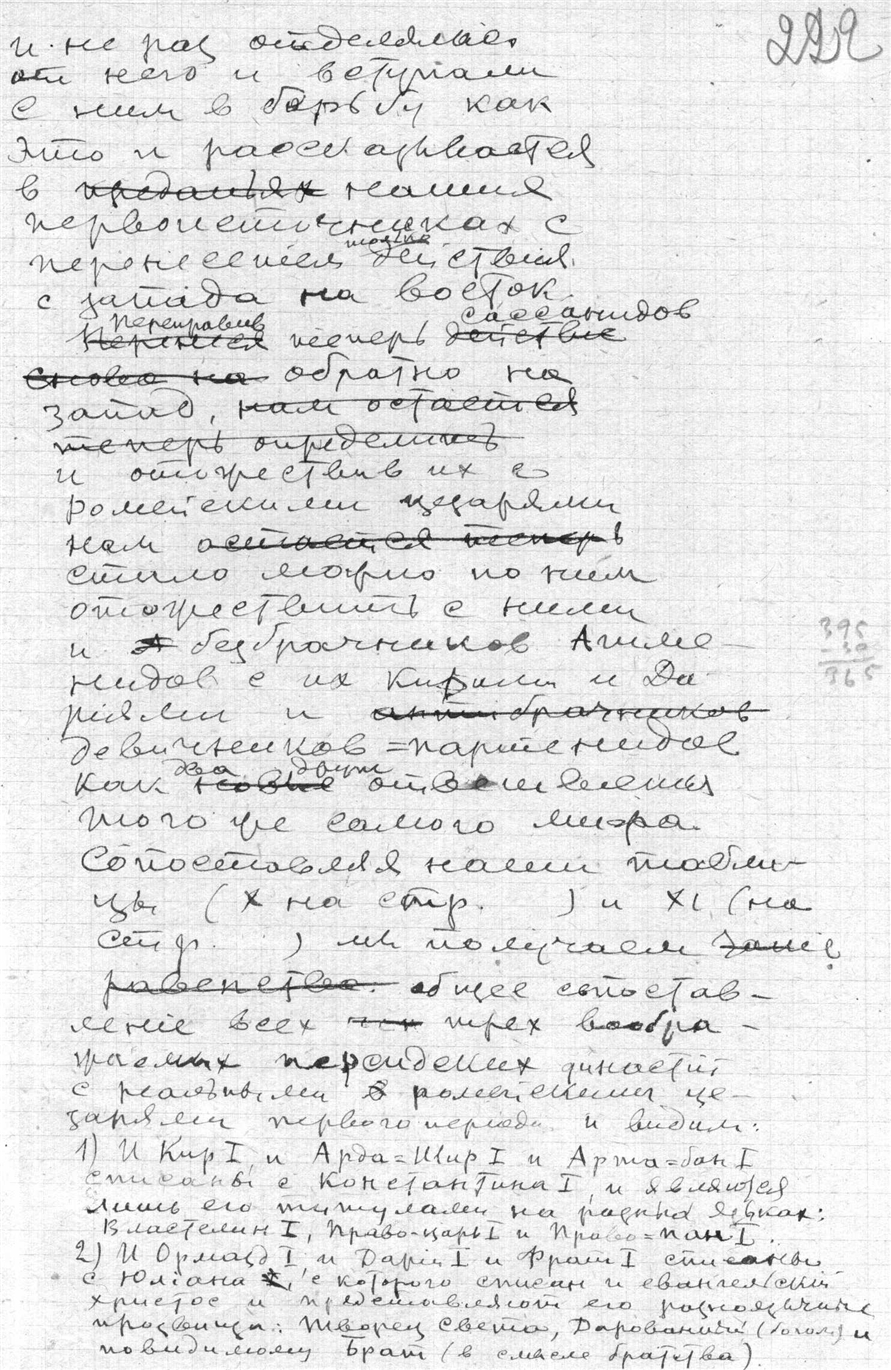 229
и не раз отделялись
от него и вступали
с ним в борьбу как
это и рассказывается
в преданьях наших
первоисточниках с
перенесеніем только действия
с запада на восток.
Переправив теперь сассанидов
Перенеся действие
снова на обратно на
запад, нам остается
теперь определить
и отожествив их с
ромейскими цезарями
нам остается теперь
стало можно по ним
отожествить с ними
и безбрачников Ахиме-
395
-30
365
нидов с их Кирами и Да-
ріями и антибрачников
девичников=партенидов
как новые два других ответвленья
того же самого мифа.
Сопоставляя наши табли-
цы (X на стр. ) и XI (на
стр. ) мы получаем
равенство. общее сопостав-
леніе всех трех вообра-
жаемых персидских династій
с реальными ромейскими це-
зарями первого періода и видим:
1) И Кир I, и Арда=Шир I и Арта=бан I
списаны с Константина I, и являются
лишь его титулами на разных языках:
Властелин I, Право-царь I и Право=пан I.
2) И Ормазд I, и Дарій I и Фрат I списаны
с Юліана, с которого списан и евангельскій
христос и представляют его разноязычные
прозвища: Творец света, Дарованный (богом) и
повидимому Брат (в смысле братства).